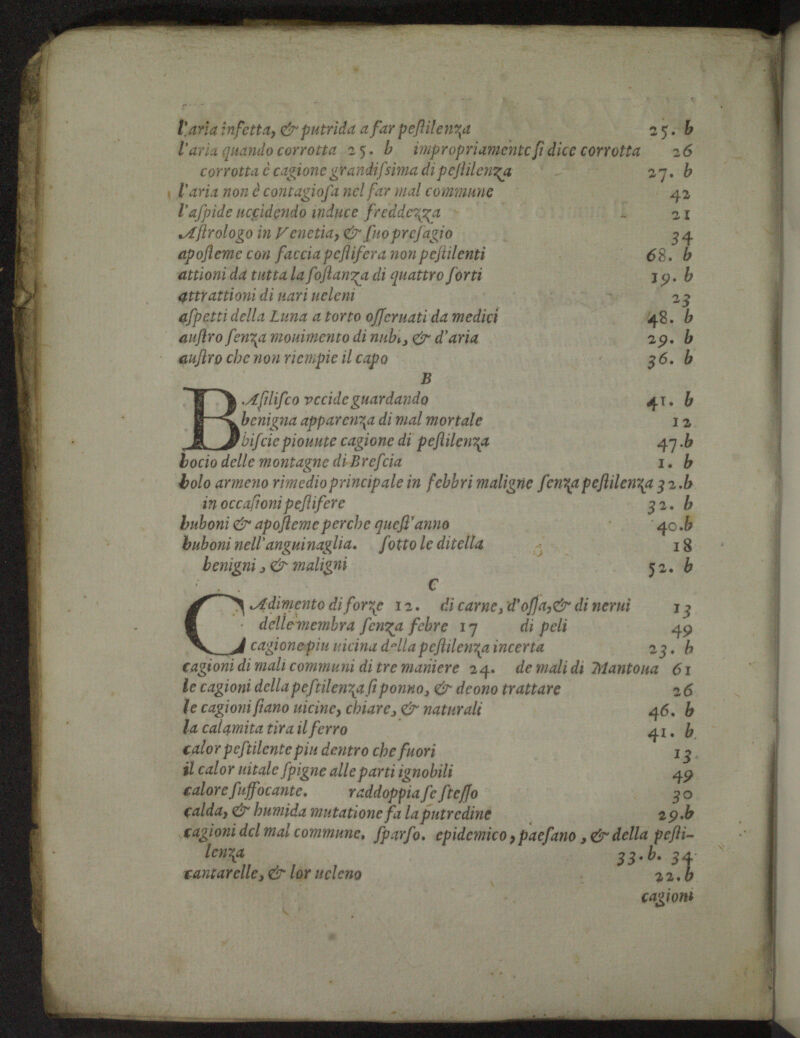 l'aria infetta, & putrida a far peſtilenza 25. b
l'aria quando corrotta 25. b impropriamente ſi dice corrotta 26
corrotta è cagione grandiſsima di peſtilenza 27. b
l'aria non è contagioſa nel far mal commune 42
l'aſpide uccidendo induce freddezza 21
Aſtrologo in Venetia, & ſuo preſagio 34
apoſteme con faccia peſtifera non peſtilenti 68. b
attioni da tutta la ſoſtanza di quattro ſorti 19. b
attrattioni di uari ueleni 23
aſpetti della Luna a torto oſſeruati da medici 48. b
auſtro ſenza mouimento di nubi, & d'aria 29. b
auſtro che non riempie il capo 36. b
B
BAſiliſco vccide guardando 41. b
benigna apparenza di mal mortale 12
biſcie piouute cagione di peſtilenza 47.b
bocio delle montagne di Breſcia 1. b
bolo armeno rimedio principale in febbri maligne ſenza peſtilenza 32.b
in occaſioni peſtifere 32. b
buboni & apoſteme perche queſt'anno 40.b
buboni nell'anguinaglia. ſotto le ditella 18
benigni, & maligni 52. b
C
CAdimento di forze 12. di carne, d'oſſa, & di nerui 13
delle membra ſenza febre 17 di peli 49
cagione piu uicina della peſtilenza incerta 23. b
cagioni di mali communi di tre maniere 24. de mali di Mantoua 61
le cagioni della peſtilenza ſi ponno, & deono trattare 26
le cagioni ſiano uicine, chiare, & naturali 46. b
la calamita tira il ferro 41. b
calor peſtilente piu dentro che fuori 13
il calor uitale ſpigne alle parti ignobili 49
calore ſuffocante. raddoppia ſe ſteſſo 30
calda, & humida mutatione fa la putredine 29.b
cagioni del mal commune. ſparſo. epidemico, paeſano, & della peſti-
lenza 33.b. 34
cantarelle, & lor ueleno 22.b
cagioni